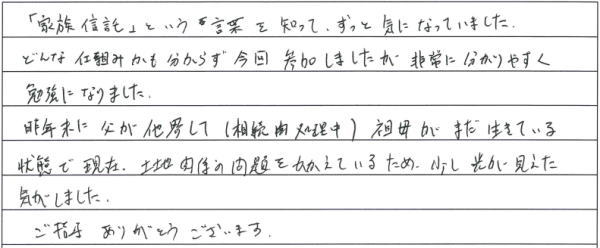 「家族信託」という言葉を知って、ずっと気になっていました.
どんな仕組みかも分からず今回参加しましたが非常に分かりやすく
勉強になりました.
昨年末に父が他界して(相続由処理中)祖母がまだ生きている
状態で現在、土地関係の問題をかかえているため、少し光が見えた
気がしました.
ご指導ありがとうございます.